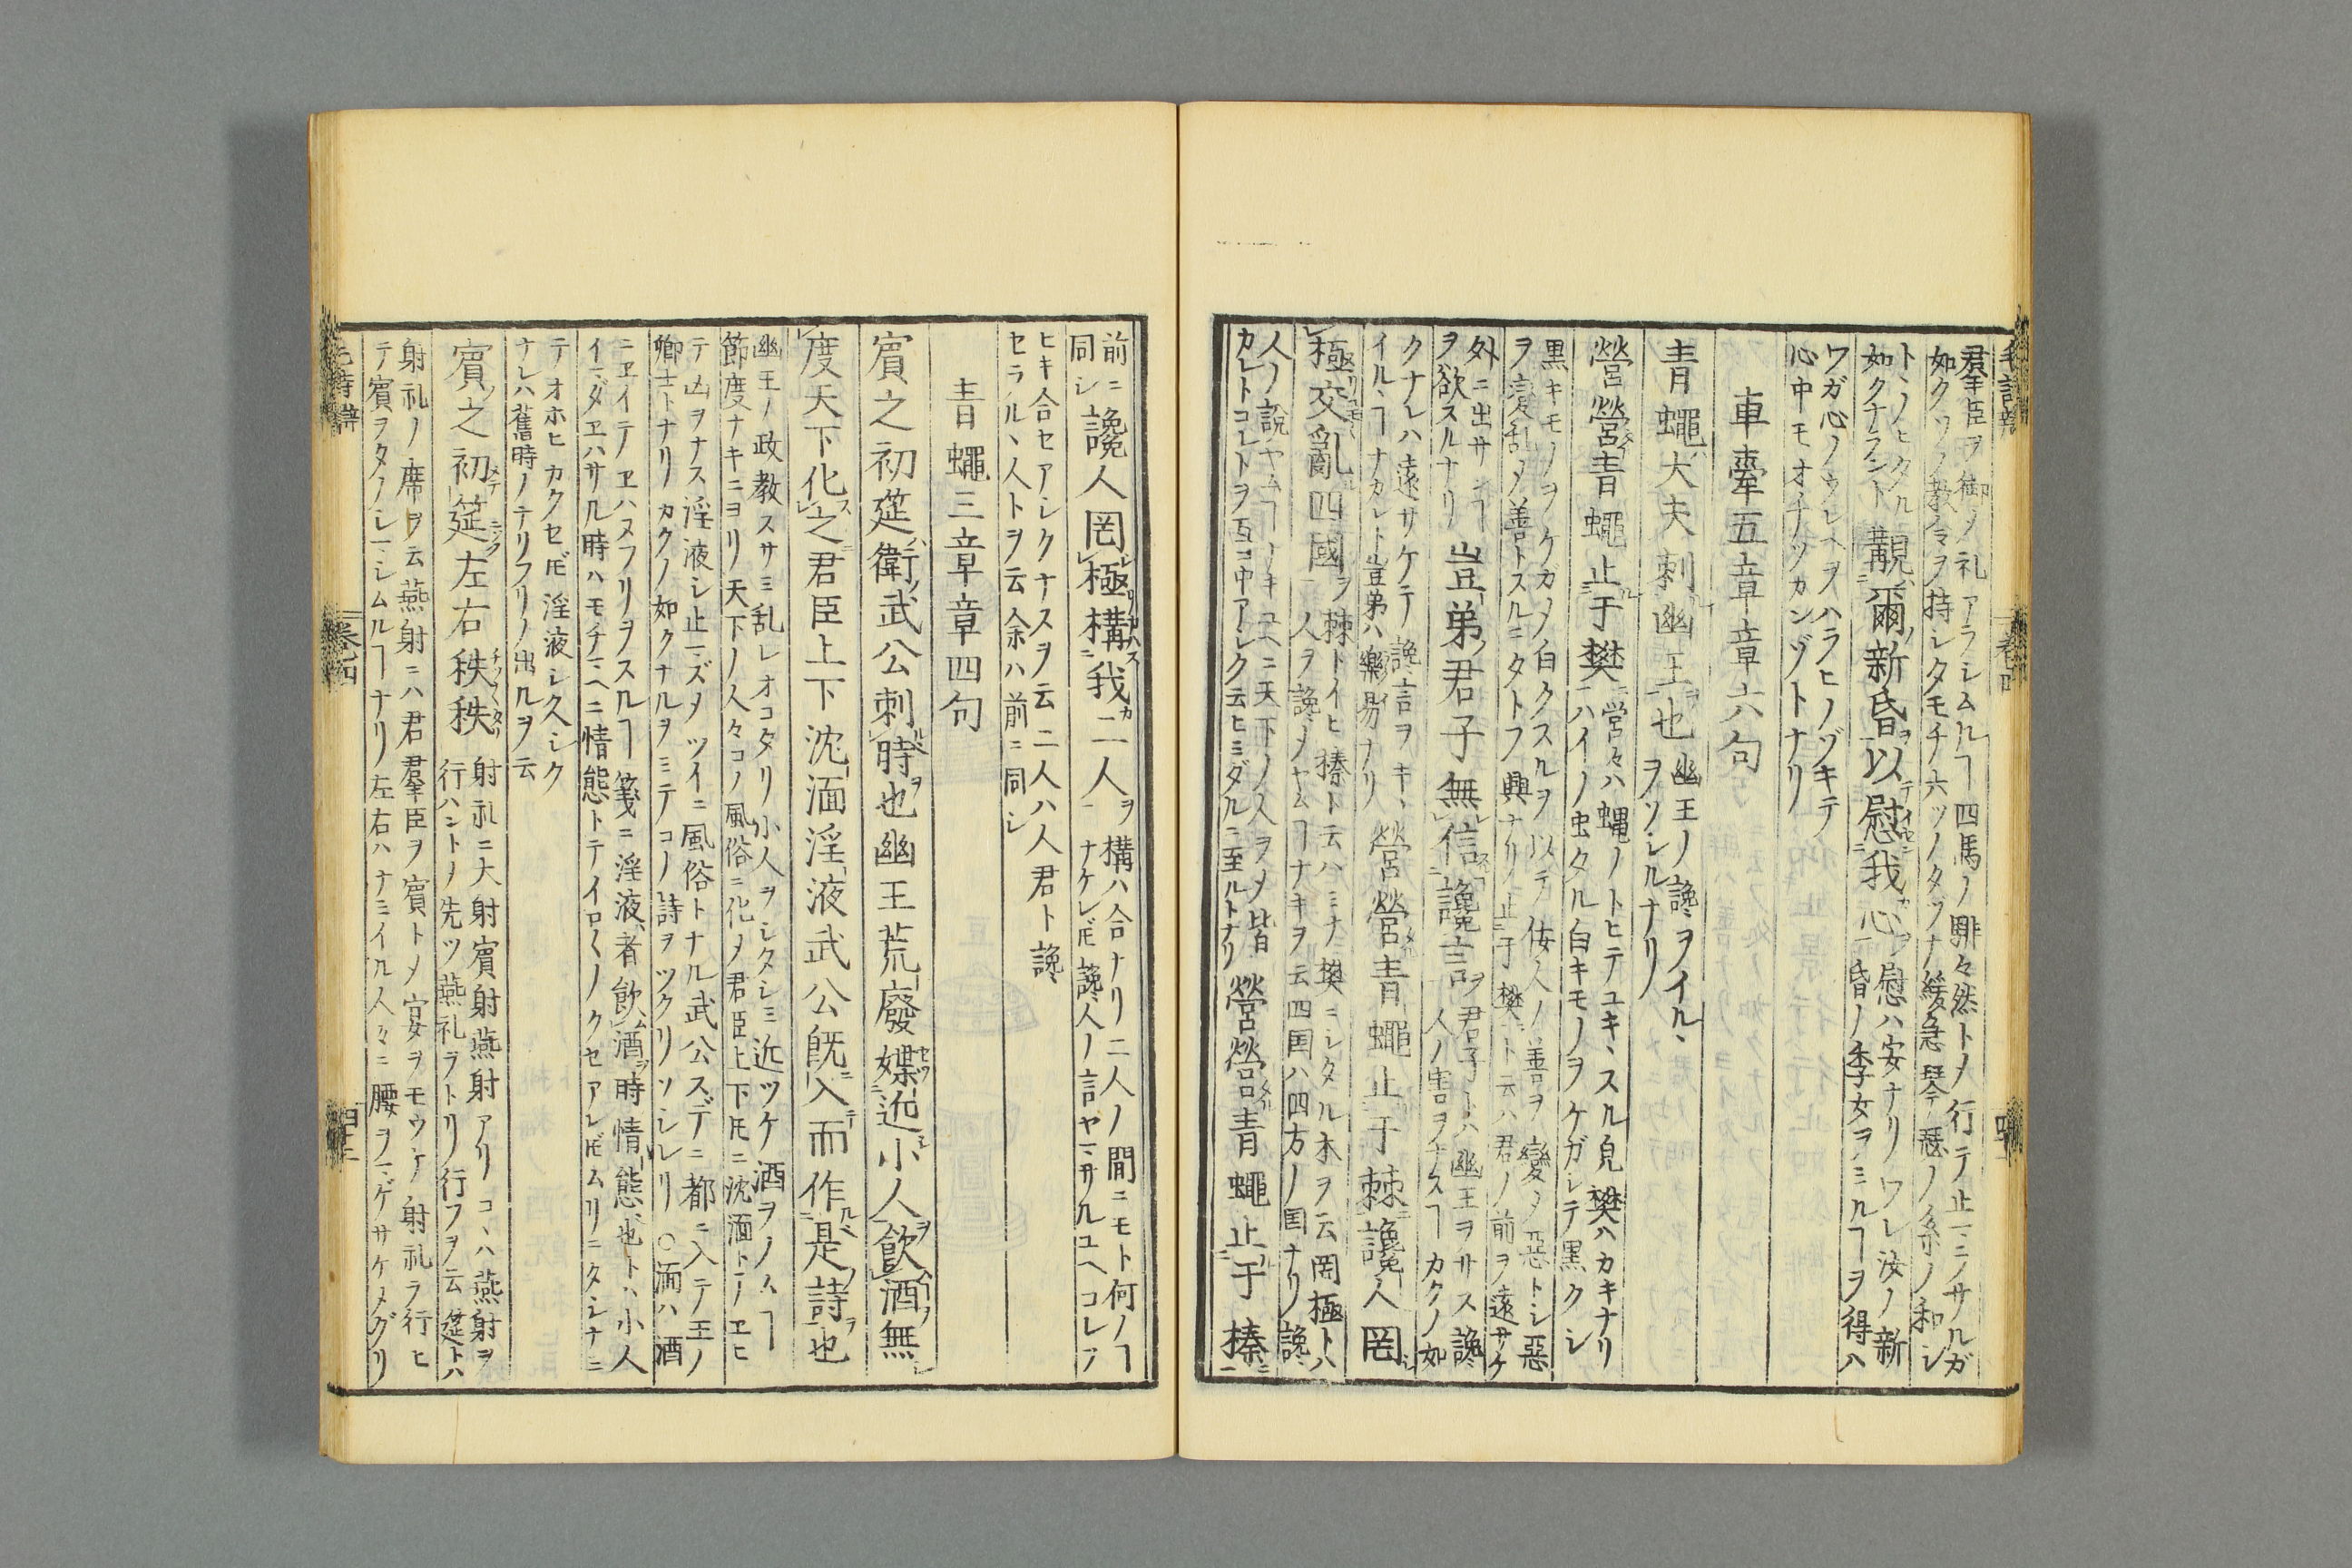 羣臣ヲ御メ礼アラシムルヿ四馬ノ騑々然トメ行テ止マニノサルガ
トヽノヒタル如クソノ教令ヲ持シタモチ六ツノタヅナ緩急琴瑟ノ糸ノ和シ
如クナラント覯爾新昏以慰我心慰ハ安ナリワレ汝ノ新
昏ノ季女ヲミルヿヲ得ハ
ワガ心ノウレヘヲハラヒノゾキテ
心中モオチツカンゾトナリ
車舝五章章六句
青蠅大夫刺幽王也幽王ノ讒ヲイルヽ
ヲソシルナリ
營營青蠅止于樊営々ハ蝿ノトヒテユキヽスル皃樊ハカキナリ
ハイノ虫タル白キモノヲケガシテ黒クシ
黒キモノヲケガメ白クスルヲ以テ佞人ノ善ヲ變メ惡トシ惡
ヲ変乱メ善トスルニタトフ興ナリ止于樊ト云ハ君ノ前ヲ遠サケ
外ニ出サンヿ
ヲ欲スルナリ豈弟君子無信讒言君子トハ幽王ヲサス讒
人ノ害ヲナスヿカクノ如
クナレハ遠サケテ讒言ヲキヽ
イルヽヿナカレト豈弟ハ樂易ナリ營營青蠅止于棘讒人罔
極交亂四國棘トイヒ榛ト云ハミナ樊ニシタル木ヲ云罔極トハ
人ヲ讒メヤムヿナキヲ云四国ハ四方ノ国ナリ讒
人ノ説ヤムヿナキユヘニ天下ノ人ヲメ皆
カレトコレトヲ互ニ中アシク云ヒミダルニ至ルトナリ營營青蠅止于榛
前ニ
同シ讒人罔極構我二人構ハ合ナリ二人ノ間ニモト何ノヿ
ナケレ𪜈讒人ノ言ヤマサルユヘコレヲ
ヒキ合セアシクナスヲ云二人ハ人君ト讒
セラルヽ人トヲ云余ハ前ニ同シ
青蠅三章章四句
賓之初筵衛武公刺時也幽王荒廢媟近小人飲酒無
度天下化之君臣上下沈湎淫液武公旣入而作是詩也
幽王ノ政教スサミ乱レオコタリ小人ヲシタシミ近ツケ酒ヲノムヿ
節度ナキニヨリ天下ノ人々コノ風俗ニ化メ君臣上下𪜈ニ沈湎トヱヒ
テ凶ヲナス淫液シ止マズメツイニ風俗トナル武公スデニ都ニ入テ王ノ
卿士トナリカクノ如クナルヲミテコノ詩ヲツクリソシレリ○湎ハ酒
ニヱイテヱハヌフリヲスルヿ箋ニ淫液者飲酒時情態也トハ小人
イマダヱハサル時ハモチマヘニ情態トテイロ〱ノクセアレ𪜈ムリニタシナミ
テオホヒカクセ𪜈淫液シ久シク
ナレハ舊時ノテリフリノ出ルヲ云
賓之初筵左右秩秩射礼ニ大射賓射燕射アリコヽハ燕射ヲ
行ハントメ先ツ燕礼ヲトリ行フヲ云筵トハ
射礼ノ席ヲ云燕射ニハ君羣臣ヲ賓トメ宴ヲモウケ射礼ヲ行ヒ
テ賓ヲタノシマシムルヿナリ左右ハナミイル人々ニ腰ヲマゲサケメグリ